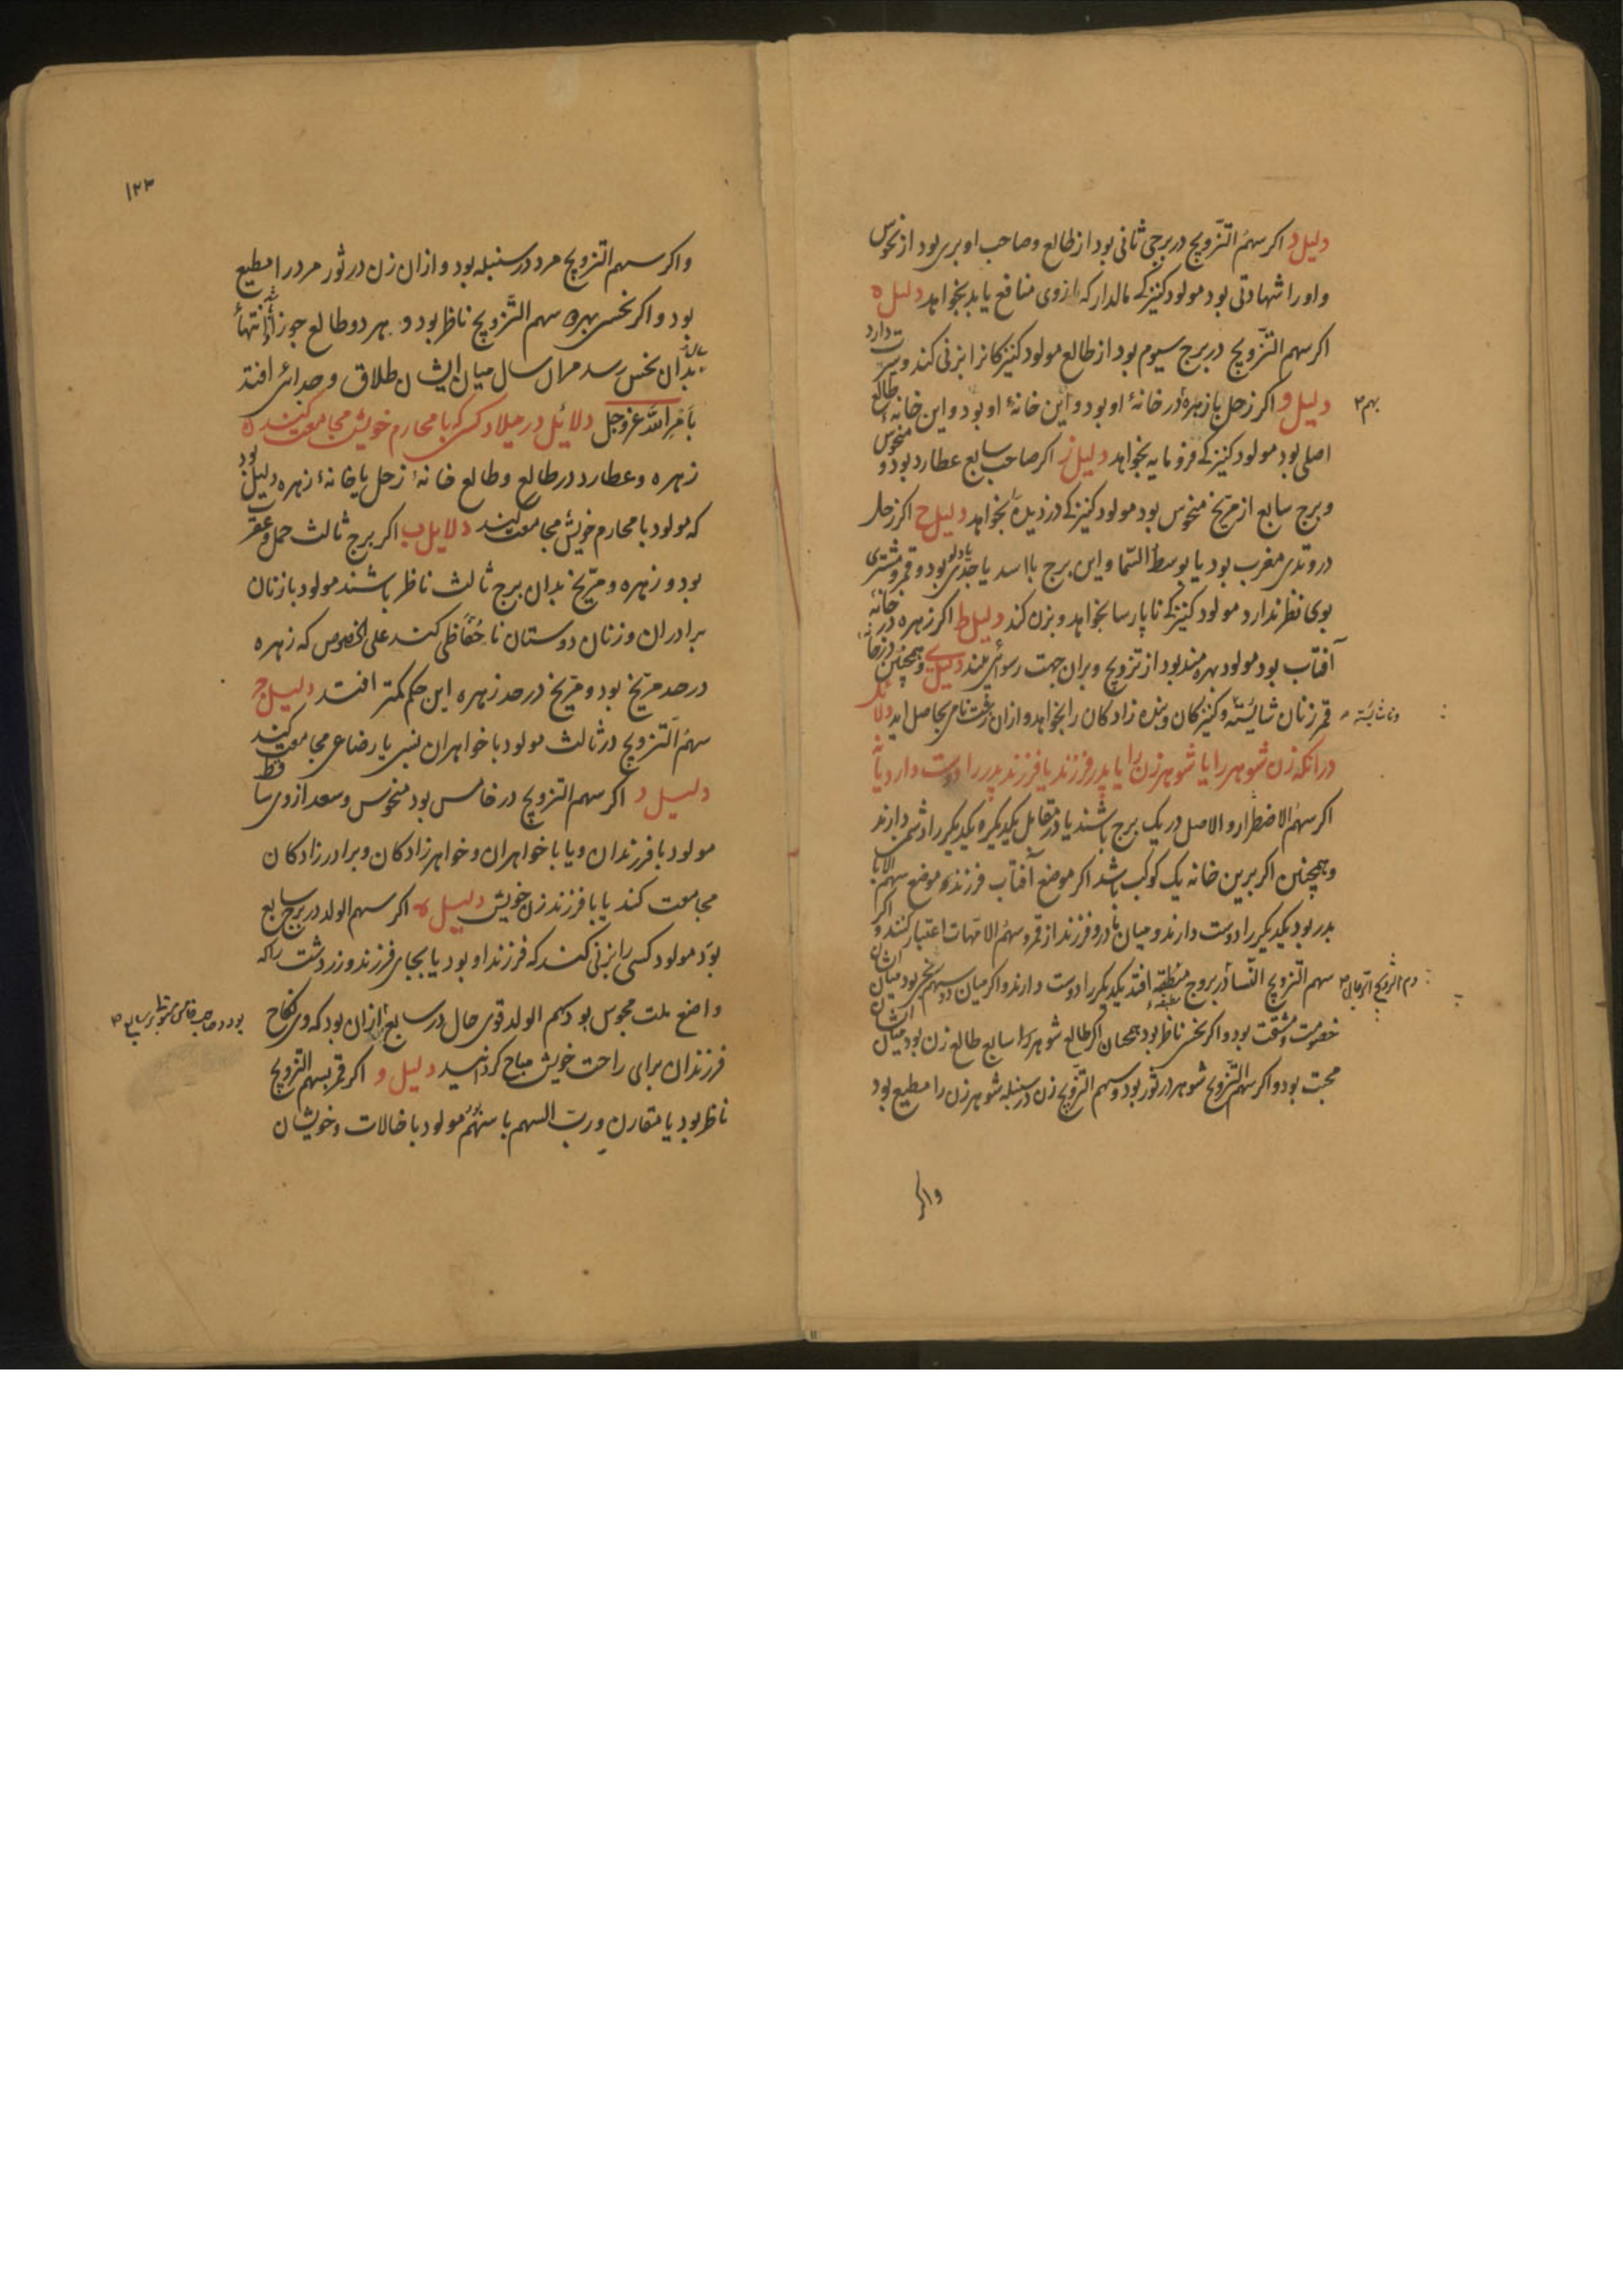 دلیل د اکر سهم التزویج در برجی ثانی بود از طالع و صاحب او بری بود از نحوس
و اورا شهادتی بود مولود کنیزکی مالدار که ازوی منافع یابد بخواهد دلیل ه
اکر سهم التزویج در برج سیوم بود از طالع مولود کنیزکانرا بزنی کند و دارد
بهم ۳
دلیل و اکر زحل با زهره در خانهٔ او بود و این خانهٔ او بود و این خانهٔ طالع
اصلی بود مولود کنیزکی فرومایه بخواهد دلیل ز اکر صاحب سابع عطارد بود و منحوس
و برج سابع از مریخ منحوس بود مولود کنیزکی دزدیده بخواهد دلیل ح اکر زحل
در وتدی مغرب بود یا بوسط السما و این برج با اسد یا جدی یا دلو بود و قمر و مشتری
بوی نظر ندارد مولود کنیزکی ناپارسا بخواهد و بزن کند دلیل ط اکر زهره در خانهٔ
آفتاب بود مولود بهره مند بود از تزویج و بران جهت رسوائی بیند دلیل ی و همچنین در خانهٔ
قمر زنان شائسته و کنیزکان و بنده زادکان را بخواهد و ازان رغبت نامی بحاصل اید دلائل
در انکه زن شوهر را یا شوهر زن را یا پدر فرزند یا فرزند پدر را دوست دارد یا نه
اکر سهم الاضطرار و الاصل در یک برج باشند یا در تقابل یکدیکر یکدیکر را دشمن دارند
و همچنین اکر برین خانه یک کوکب باشد اکر موضع آفتاب فرزند موضع سهم الابا
پدر بود یکدیکر را دوست دارند و میان مادر و فرزند از قمر و سهم الامهات اعتبار کنند و اکر
سهم التزویج النسا در بروج افتد یکدیکر را دوست دارند و اکر میان دو سهم نحس بود میان ایشان
خصومت و مشقت بود و اکر نحس ناظر بود همچنان اکر طالع شوهر را سابع طالع زن بود میان ایشان
محبت بود و اکر سهم التزویج شوهر در ثور بود و سهم التزویج زن در سنبله شوهر زن را مطیع بود
واکر
۱۲۳
واکر سهم التزویج مرد در سنبله بود و ازان زن در ثور مرد را مطیع
بود و اکر نحس بهره سهم التزویج ناظر بود و بهر دو طالع جوزا انتهاٴ
بدان نحس رسد مران سال میان ایشان طلاق و جدائی افتد
بامر الله عز وجل دلائل در میلاد کسی که با محارم خویش مجامعت کنند ه
زهره و عطارد در طالع و طالع خانهٔ زحل یا خانهٔ زهره دلیل بود
که مولود با محارم خویش مجامعت کند دلایل ب اکر برج ثالث حمل و عقرب
بود و زهره و مریخ بدان برج ثالث ناظر باشند مولود با زنان
برادران و زنان دوستان نا حفاظی کند علی الخصوص که زهره
در حد مریخ بود و مریخ در حد زهره این حکم کمتر افتد دلیل ج
سهم التزویج در ثالث مولود با خواهران نسبی یا رضاعی مجامعت کند
دلیل د اکر سهم التزویج در خامس بود منحوس و سعد ازوی ساقط
مولود با فرزندان و یا با خواهران و خواهرزادکان و برادرزادکان
مجامعت کند یا با فرزند زن خویش دلیل ه اکر سهم الولد در برج سابع
بود مولود کسی را بزنی کند که فرزند او بود یا بجای فرزند و زردشت را که
واضع ملت مجوس بود سهم الولد قوی حال در سابع ازان بود که وی نکاح
فرزندان برای راحت خویش مباح کردانید دلیل و اکر قمر بسهم التزویج
ناظر بود یا مقارن و رب السهم با سهم بود مولود با خالات و خویشان